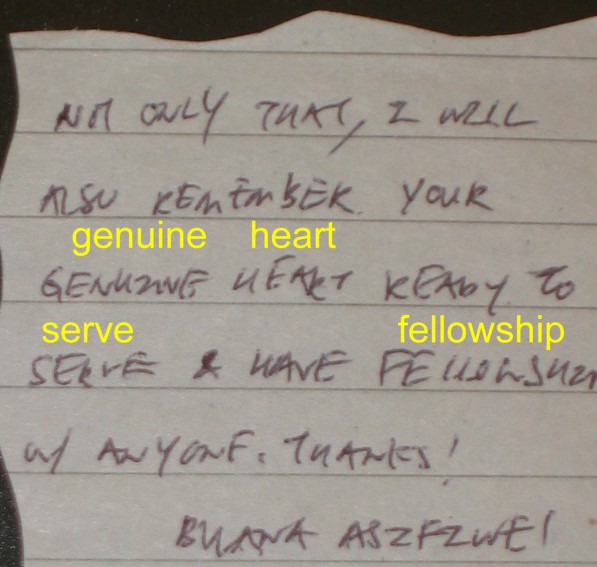 NOT ONLY THAT, I WILL
ALSO REMEMBER YOUR
genuine heart
GENUINE HEART READY TO
serve fellowship
SERVE & HAVE FELLOWSHIP
W/ ANYONE. THANKS!
BWANA ASIFIWE!